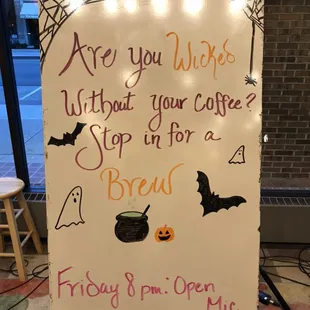 Are you Wicked
Without your Coffee?
Stop in for a
Brew
Friday 8pm: Open
Mic